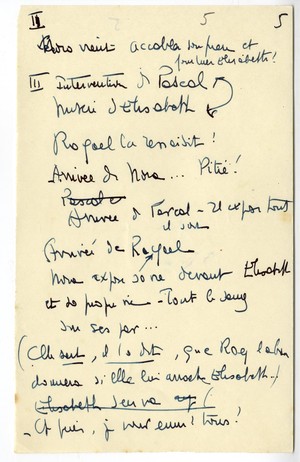 II 5 5
Nora vient accabler son père et
Elisabeth!
III Intervention de Pascal
d'Elisabeth
Raquel la maudit!
Arrivée de Nora... Pitié!
Pascal
Arrivée de Pascal - Il expose tout
il sait
Arrivée de Raquel
Nora expose sa vie devant Elisabeth
et sa propre vie - Tout le sang
sur ses pas...
(Elle sent, il le dit, que Raq l'aban
donnera si elle lui arrache Elisabeth -)
Elisabeth s'en va
- Et puis, je vous tous!